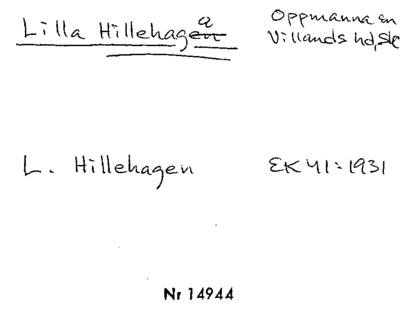 Lilla Hillehagena
Oppmanna sn
Villands hd, Sk
L. Hillehagen
EK 41:1931
Nr 14944